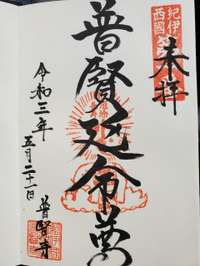 紀伊
西國
奉拝
普賢延命尊
令和三年
五月二十一日
普賢寺